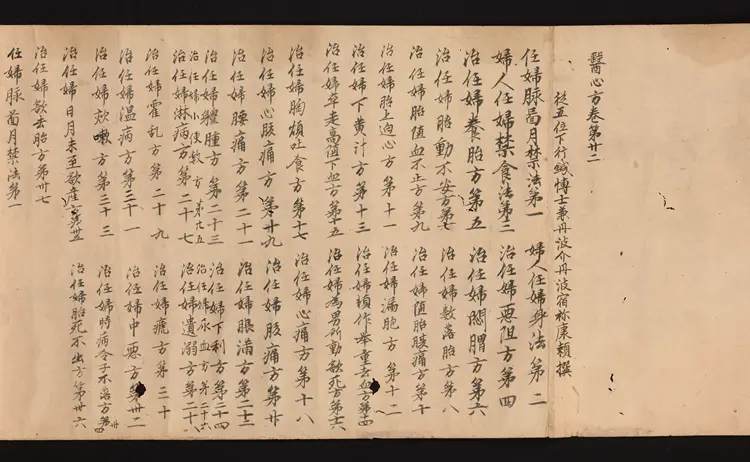 醫心方卷第廿二
從五位下行鍼博士兼丹波介丹波宿祢康頼撰
任婦脉啚月禁法第一 婦人任婦身法第二
婦人任婦禁食法第三 治任婦悪阻方第四
治任婦養胎方第五 治任婦悶胃方第六
治任婦胎動不安方第七 治任婦数落胎方第八
治任婦胎堕血不止方第九 治任婦堕胎腹痛方第十
治任婦胎上迫心方第十一 治任婦漏胞方第十二
治任婦下黄汁方第十三 治任婦頓作举重去血方第十四
治任婦卒走高堕下血方第十五 治任婦為男所動欲死方第十六
治任婦胸煩吐食方第十七 治任婦心痛方第十八
治任婦心腹痛方第十九 治任婦腹痛方第廿
治任婦腰痛方第二十一 治任婦脹満方第二十二
治任婦軆腫方第二十三 治任婦下利方第二十四
治任婦使数方第廿五 治任婦尿血方第二十六
治任婦淋病方第二十七 治任婦遺溺方第二十八
治任婦霍乱方第二十九 治任婦瘧方第三十
治任婦温病方第三十一 治任婦中悪方第卅二
治任婦咳嗽方第三十三 治任婦時病令子不落方第卅四
治任婦日月未至欲産方第卅五 治任婦胎死不出方第卅六
治任婦欲去胎方第卅七
任婦脉啚月禁法第一